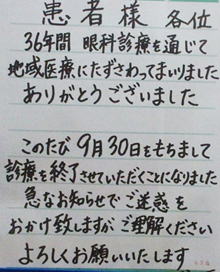 患者様 各位
36年間 眼科診療を通じて
地域医療にたずさわってまいりました
ありがとうございました
このたび 9月30日をもちまして
診療を終了させていただくことになりました
急なお知らせでご迷惑を
おかけ致しますが ご理解ください
よろしくお願いいたします